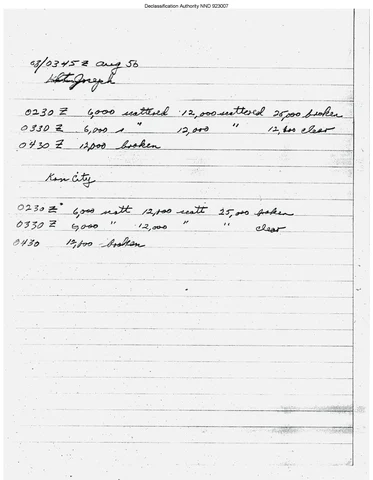 Declassification Authority NND 923007
03/0345 Z Aug 56
St Joseph
0230 Z 6,000 scattered 12,000 scattered 25,000 broken
0330 Z 6,000 s " 12,000 " 12,000 clear
0430 Z 12,000 broken
Kan City
0230 Z 6,000 scatt 12,000 scatt 25,000 broken
0330 Z 6,000 " 12,000 " " clear
0430 12,000 broken